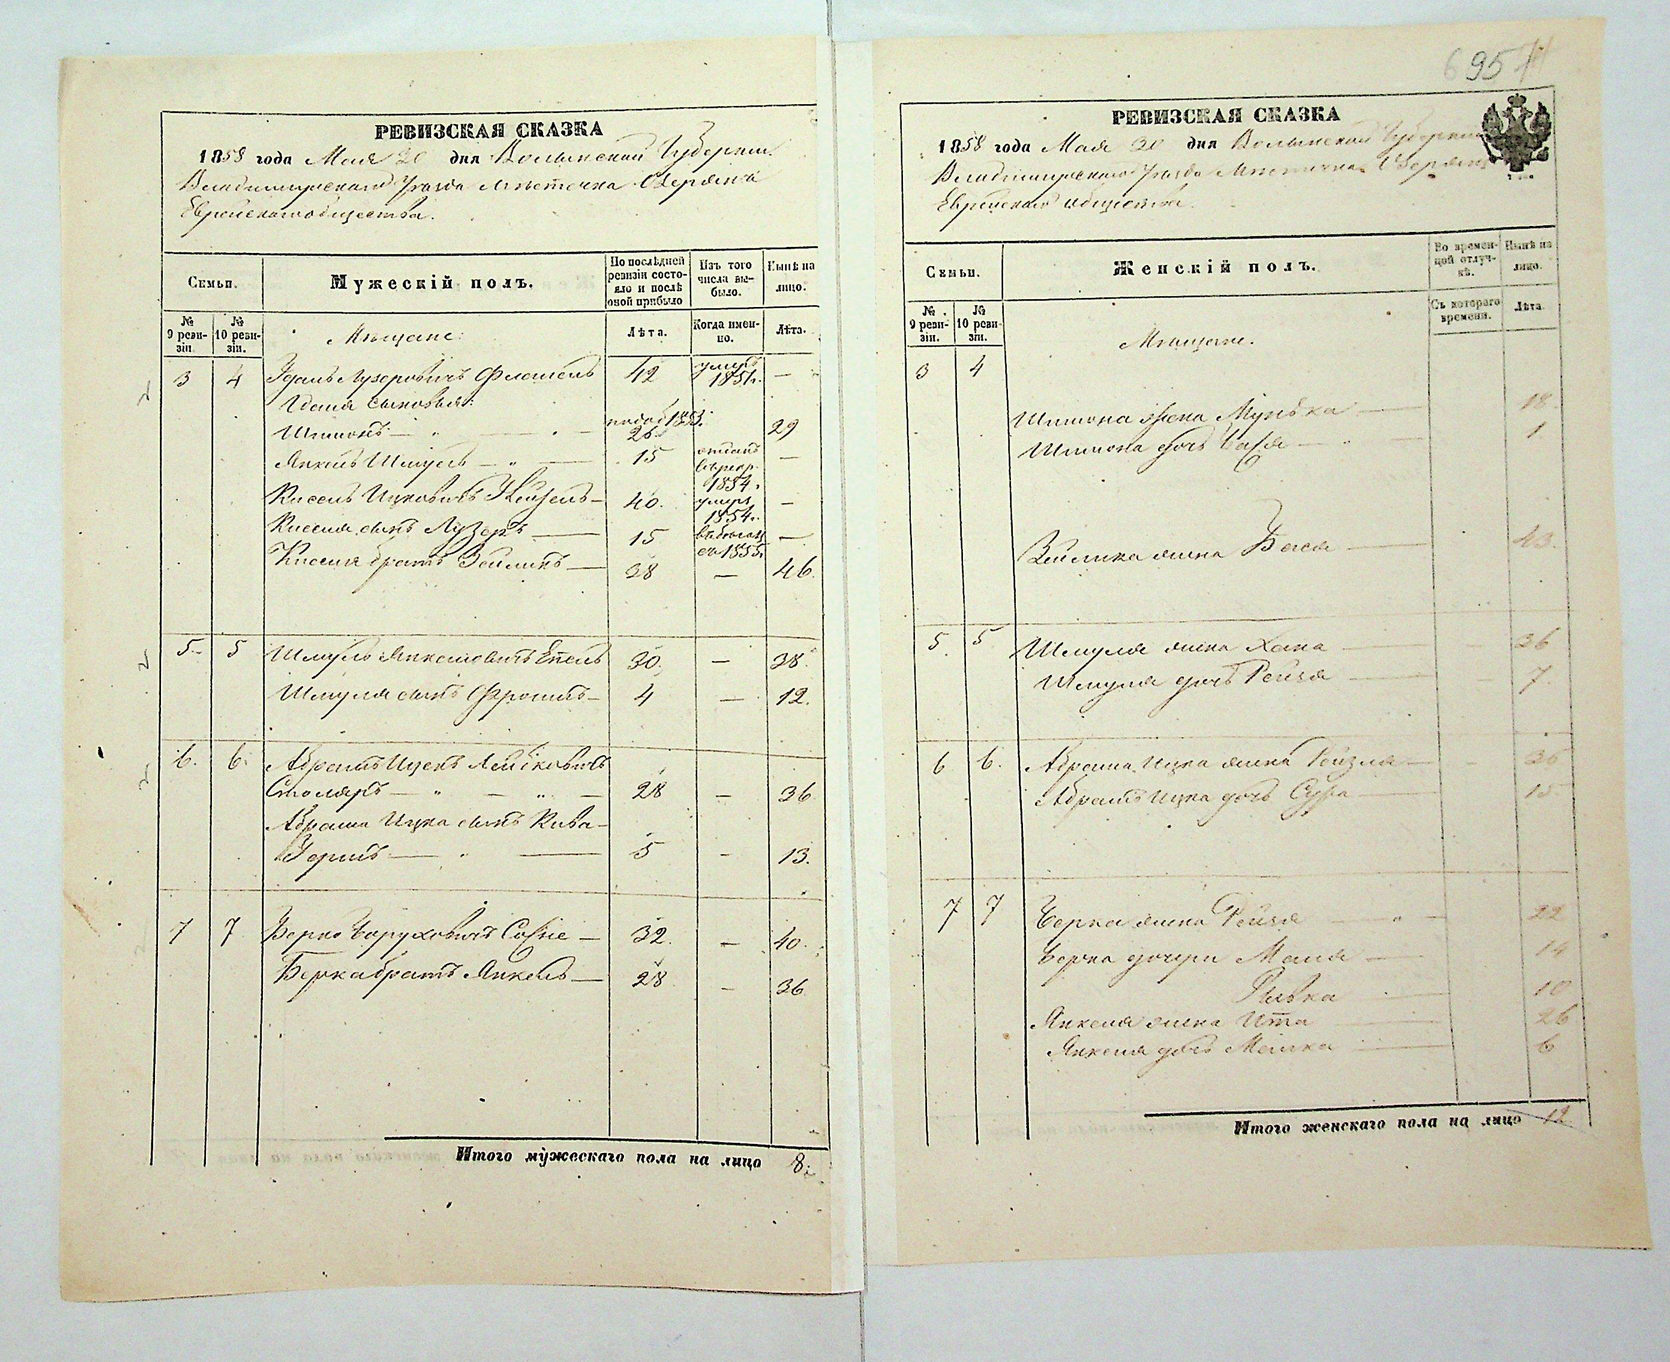 РЕВИЗСКАЯ СКАЗКА
1858 года Мая 20 дня Волынской Губернии
Владимирскаго Уезда Местечка Озерянъ
Еврейскаго общества.
Семьи.
Мужескій полъ.
По послѣдней ревизіи состояло и послѣ оной прибыло
Изъ того числа выбыло.
Нынѣ на лицо.
№ 9 ревизіи.
№ 10 ревизіи.
Мещане:
Лѣта.
Когда именно.
Лѣта.
3 4 Лузеровичъ 42 умеръ 1851г. —
сыновья:
Шимонъ — 29
Янкель Шмуль — 15 1854. —
Кисель Ицковичъ — 40. умеръ 1854г. —
Киселя сынъ Лузеръ — 15 1855. —
Киселя братъ Зейликъ — 38 — 46.
5. 5 Шмуль Янкелевичъ 30. — 38.
Шмуля сынъ Фроимъ — 4 — 12.
6. 6. Абрамъ Ицекъ Лейбковичъ
Столяръ — 28 — 36
Абрама Ицка сынъ Кива —
Герш — 5 — 13.
7 7 Берко Боруховичъ — 32. — 40.
Берка братъ Янкель — 28 — 36
Итого мужескаго пола на лицо 8.
695
РЕВИЗСКАЯ СКАЗКА
1858 года Мая 20 дня Волынской Губернии
Владимирскаго Уезда Местечка
Еврейскаго общества
Семьи.
Женскій полъ.
Во временной отлучкѣ.
Нынѣ на лицо.
№ 9 ревизіи.
№ 10 ревизіи.
Съ котораго времени.
Лѣта.
Мещане.
3 4
Шимона жена — 18
Шимона дочь Бася — 1
Зейлика жена Бася — 43.
5. 5 Шмуля жена Хана — 36
Шмуля дочь Рейзя — 7
6 6. Абрама Ицка жена Рейзля — 36
Абрама Ицка дочь Сура — 15
7 7 Берка жена Рейзя — 22
Берка дочери Маля — 14
Ривка 10
Янкеля жена Ита 26
Янкеля дочь 6
Итого женскаго пола на лицо 12